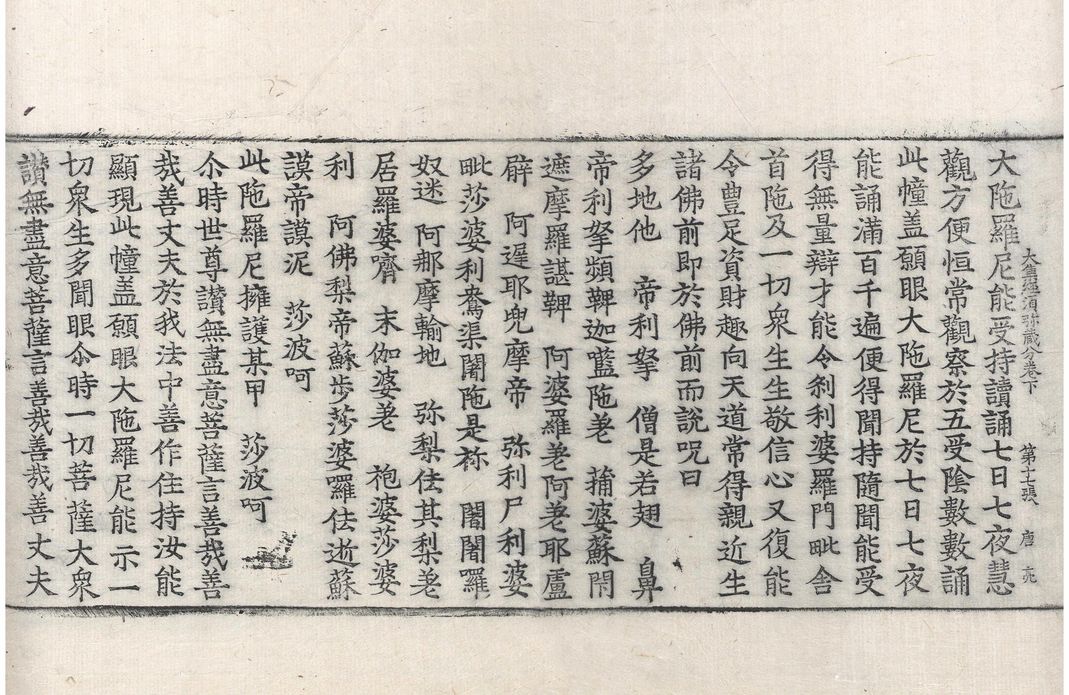 大集經須弥藏分卷下　第十七張　唐
大陁羅尼能受持讀誦七日七夜慧
觀方便恒常觀察於五受陰數數誦
此幢盖願眼大陁羅尼於七日七夜
能誦滿百千遍便得聞持隨聞能受
得無量辯才能令刹利婆羅門毗舍
首陁及一切衆生生敬信心又復能
令豊足資財趣向天道常得親近生
諸佛前即於佛前而說呪曰
多地他　帝利拏　僧是若翅　鼻
帝利拏頻鞞迦嚂陁㝹　蒱婆蘇閇
遮摩羅諶鞞　阿婆羅㝹阿㝹耶盧
辟　阿遲耶兜摩帝　弥利尸利婆
毗莎婆利鴦渠闍陁是祢　闍闍羅
奴迷　阿那摩輸地　弥梨佉其梨㝹
居羅婆嚌　末伽婆㝹　袍婆莎婆
利　阿佛梨帝蘇步莎婆囉佉逝蘇
謨帝謨泥　莎波呵
此陁羅尼擁護某甲　莎波呵
尒時世尊讚無盡意菩薩言善㢤善
㢤善丈夫於我法中善作住持汝能
顯現此幢盖願眼大陁羅尼能示一
切衆生多聞眼尒時一切菩薩大衆
讚無盡意菩薩言善㢤善㢤善丈夫